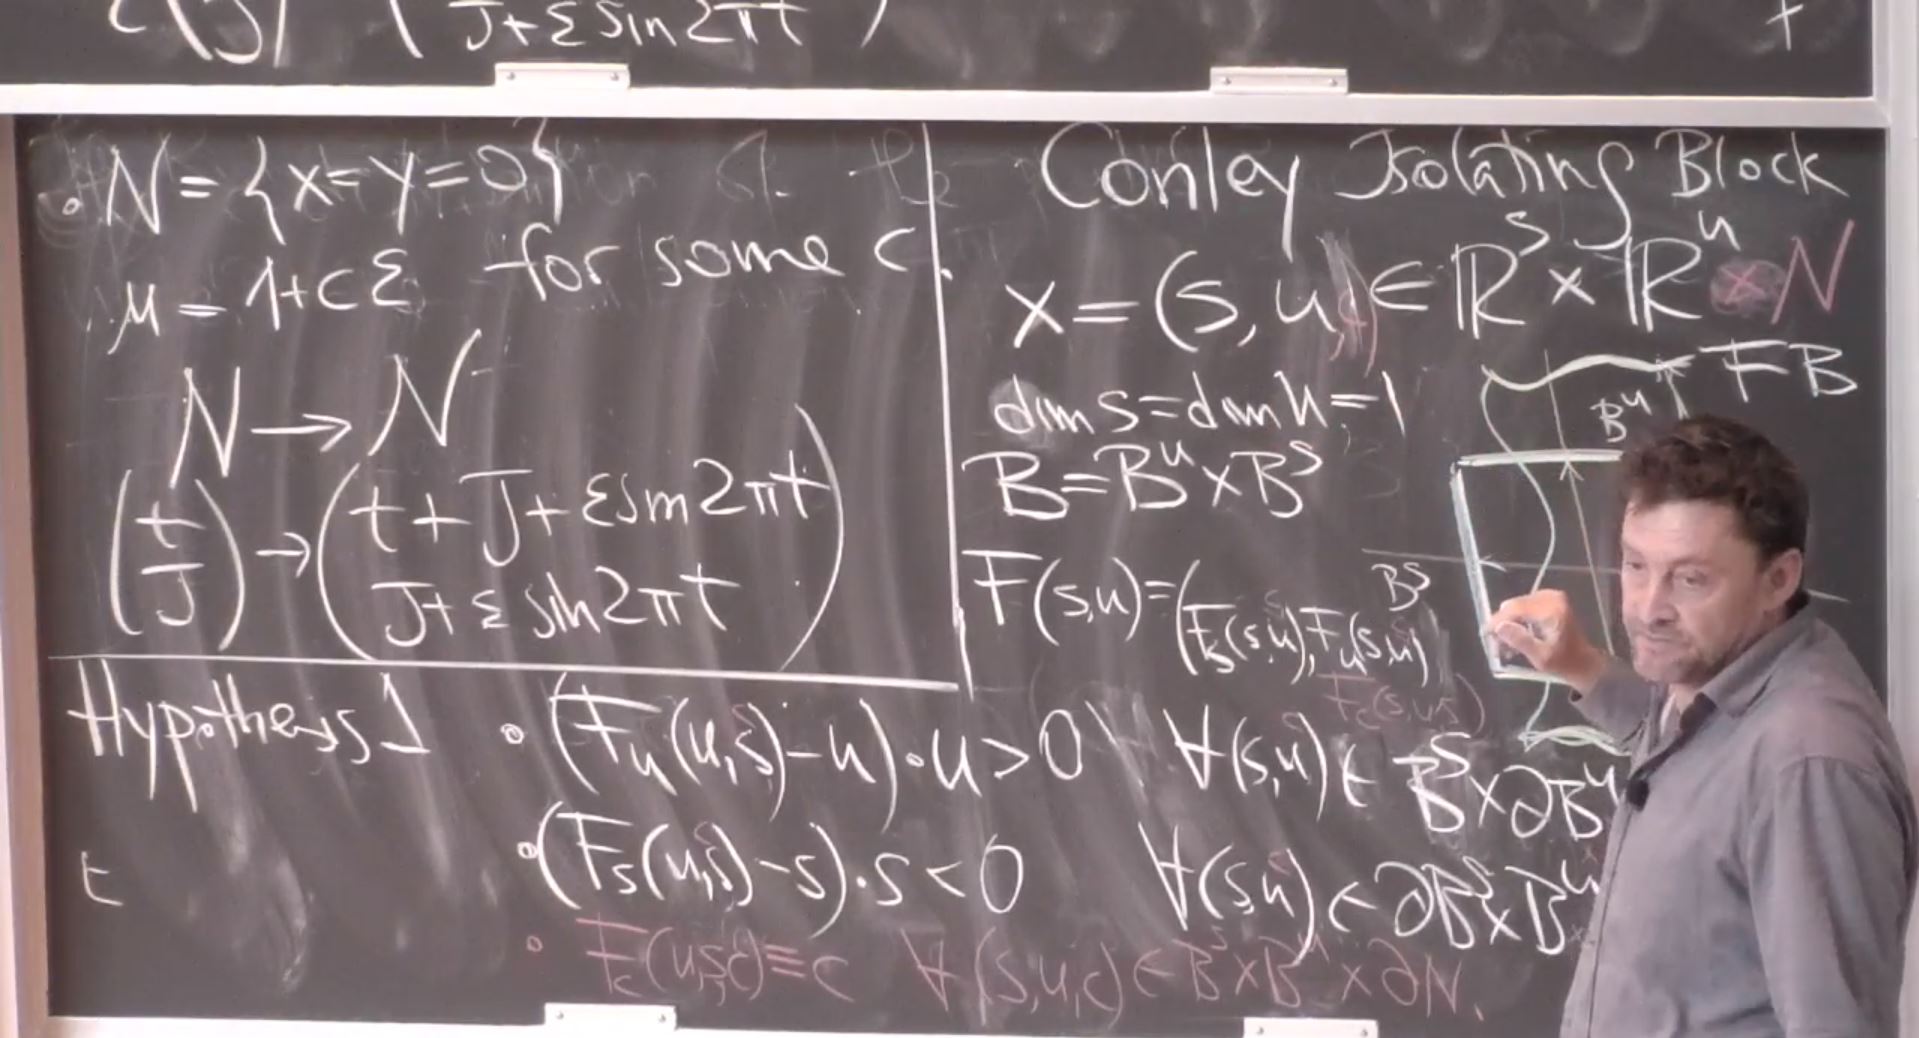 J+εsin2πt
• N={x=y=0}
μ=1+cε for some c.
N→N
(t J)→(t+J+εsin2πt
J+εsin2πt)
Hypothesis 1
t
Conley Isolating Block
x=(s,u,c)∈ℝˢ×ℝᵘ×N
dim s=dim u=1
B=Bᵘ×Bˢ
F(s,u)=(F_s(s,u),F_u(s,u)
F_c(s,u,c)
FB
Bᵘ
Bˢ
• (F_u(u,s)-u)·u>0 ∀(s,u)∈Bˢ×∂Bᵘ
• (F_s(u,s)-s)·s<0 ∀(s,u)∈∂Bˢ×Bᵘ
• F_c(u,s,c)≡c ∀(s,u,c)∈Bˢ×Bᵘ×∂N.